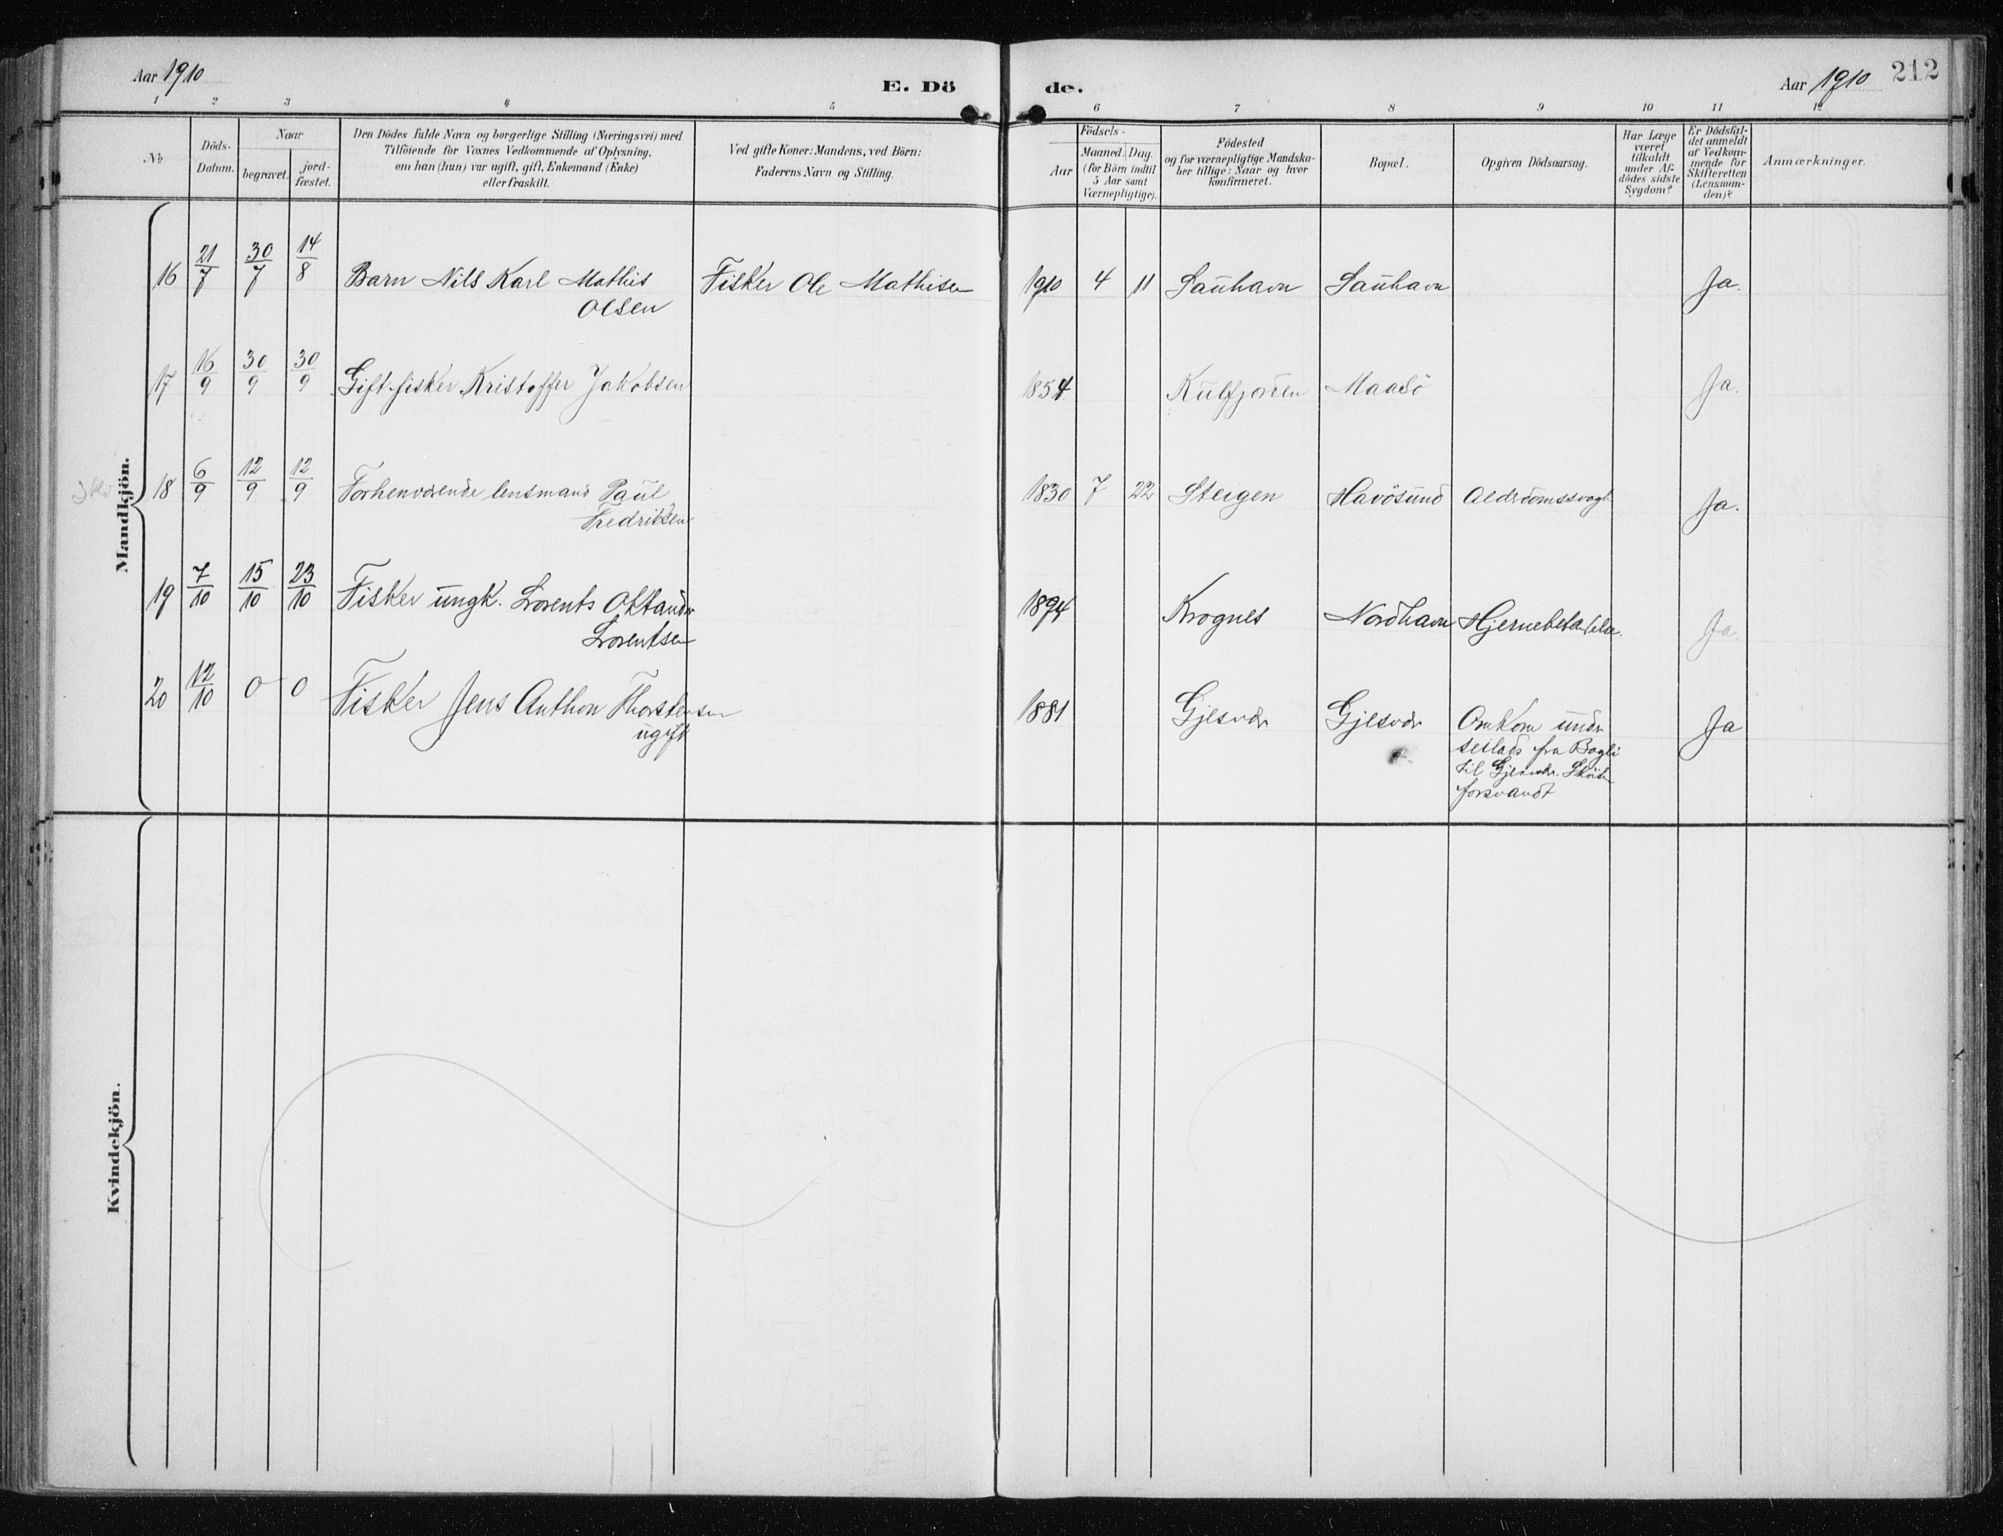 Aar 1910
E. Dö
de.
Aar 1910 212
1 2 3 4 5 6 7 8 9 10 11 12
No
Döds-
Datum.
Naar
begravet.
jord-
fæstet.
Den Dödes fulde Navn og borgerlige Stilling (Næringsvei) med
Tilföiende for Voxnes Vedkommende af Oplysning,
om han (hun) var ugift, gift, Enkemand (Enke)
eller fraskilt.
Ved gifte Koner: Mandens, ved Börn:
Faderens Navn og Stilling.
Födsels-
Aar
Maaned. Dag.
(for Börn indtil
5 Aar samt
Værnepligtige).
Födested
og for værnepligtige Mandska-
ber tillige: Naar og hvor
konfirmeret.
Bopæl.
Opgiven Dödsaarsag.
Har Læge
været
tilkaldt
under Af-
dödes sidste
Sygdom?
Er Dödsfal-
det anmeldt
af Vedkom-
mende for
Skifteretten
(Lensman-
den)?
Anmærkninger.
Mandkjön.
16 21/7 30/7 14/8 Barn Nils Karl Mathis Fisker Ole Mathisen 1910 4 11 Sauhavn Sauhavn Ja.
Olsen
17 16/9 30/9 30/9 Gift fisker Kristoffer Jakobsen 1854 Maasö Ja.
18 6/9 12/9 12/9 Forhenværende lensmand Paul 1830 7 22 Steigen Havösund Alderdomssvagh Ja.
Fredriksen
19 7/10 15/10 23/10 Fisker ungk. Lorents Oktander 1894 Krognes Nordhavn Hjernebetændelse. Ja
Lorentsen
20 12/10 0 0 Fisker Jens Anthon Thorstensen 1881 Gjesvær Gjesvær Omkom under Ja
ugift
seilads fra
til Gjesvær. Sköiten
forsvandt
Kvindekjön.